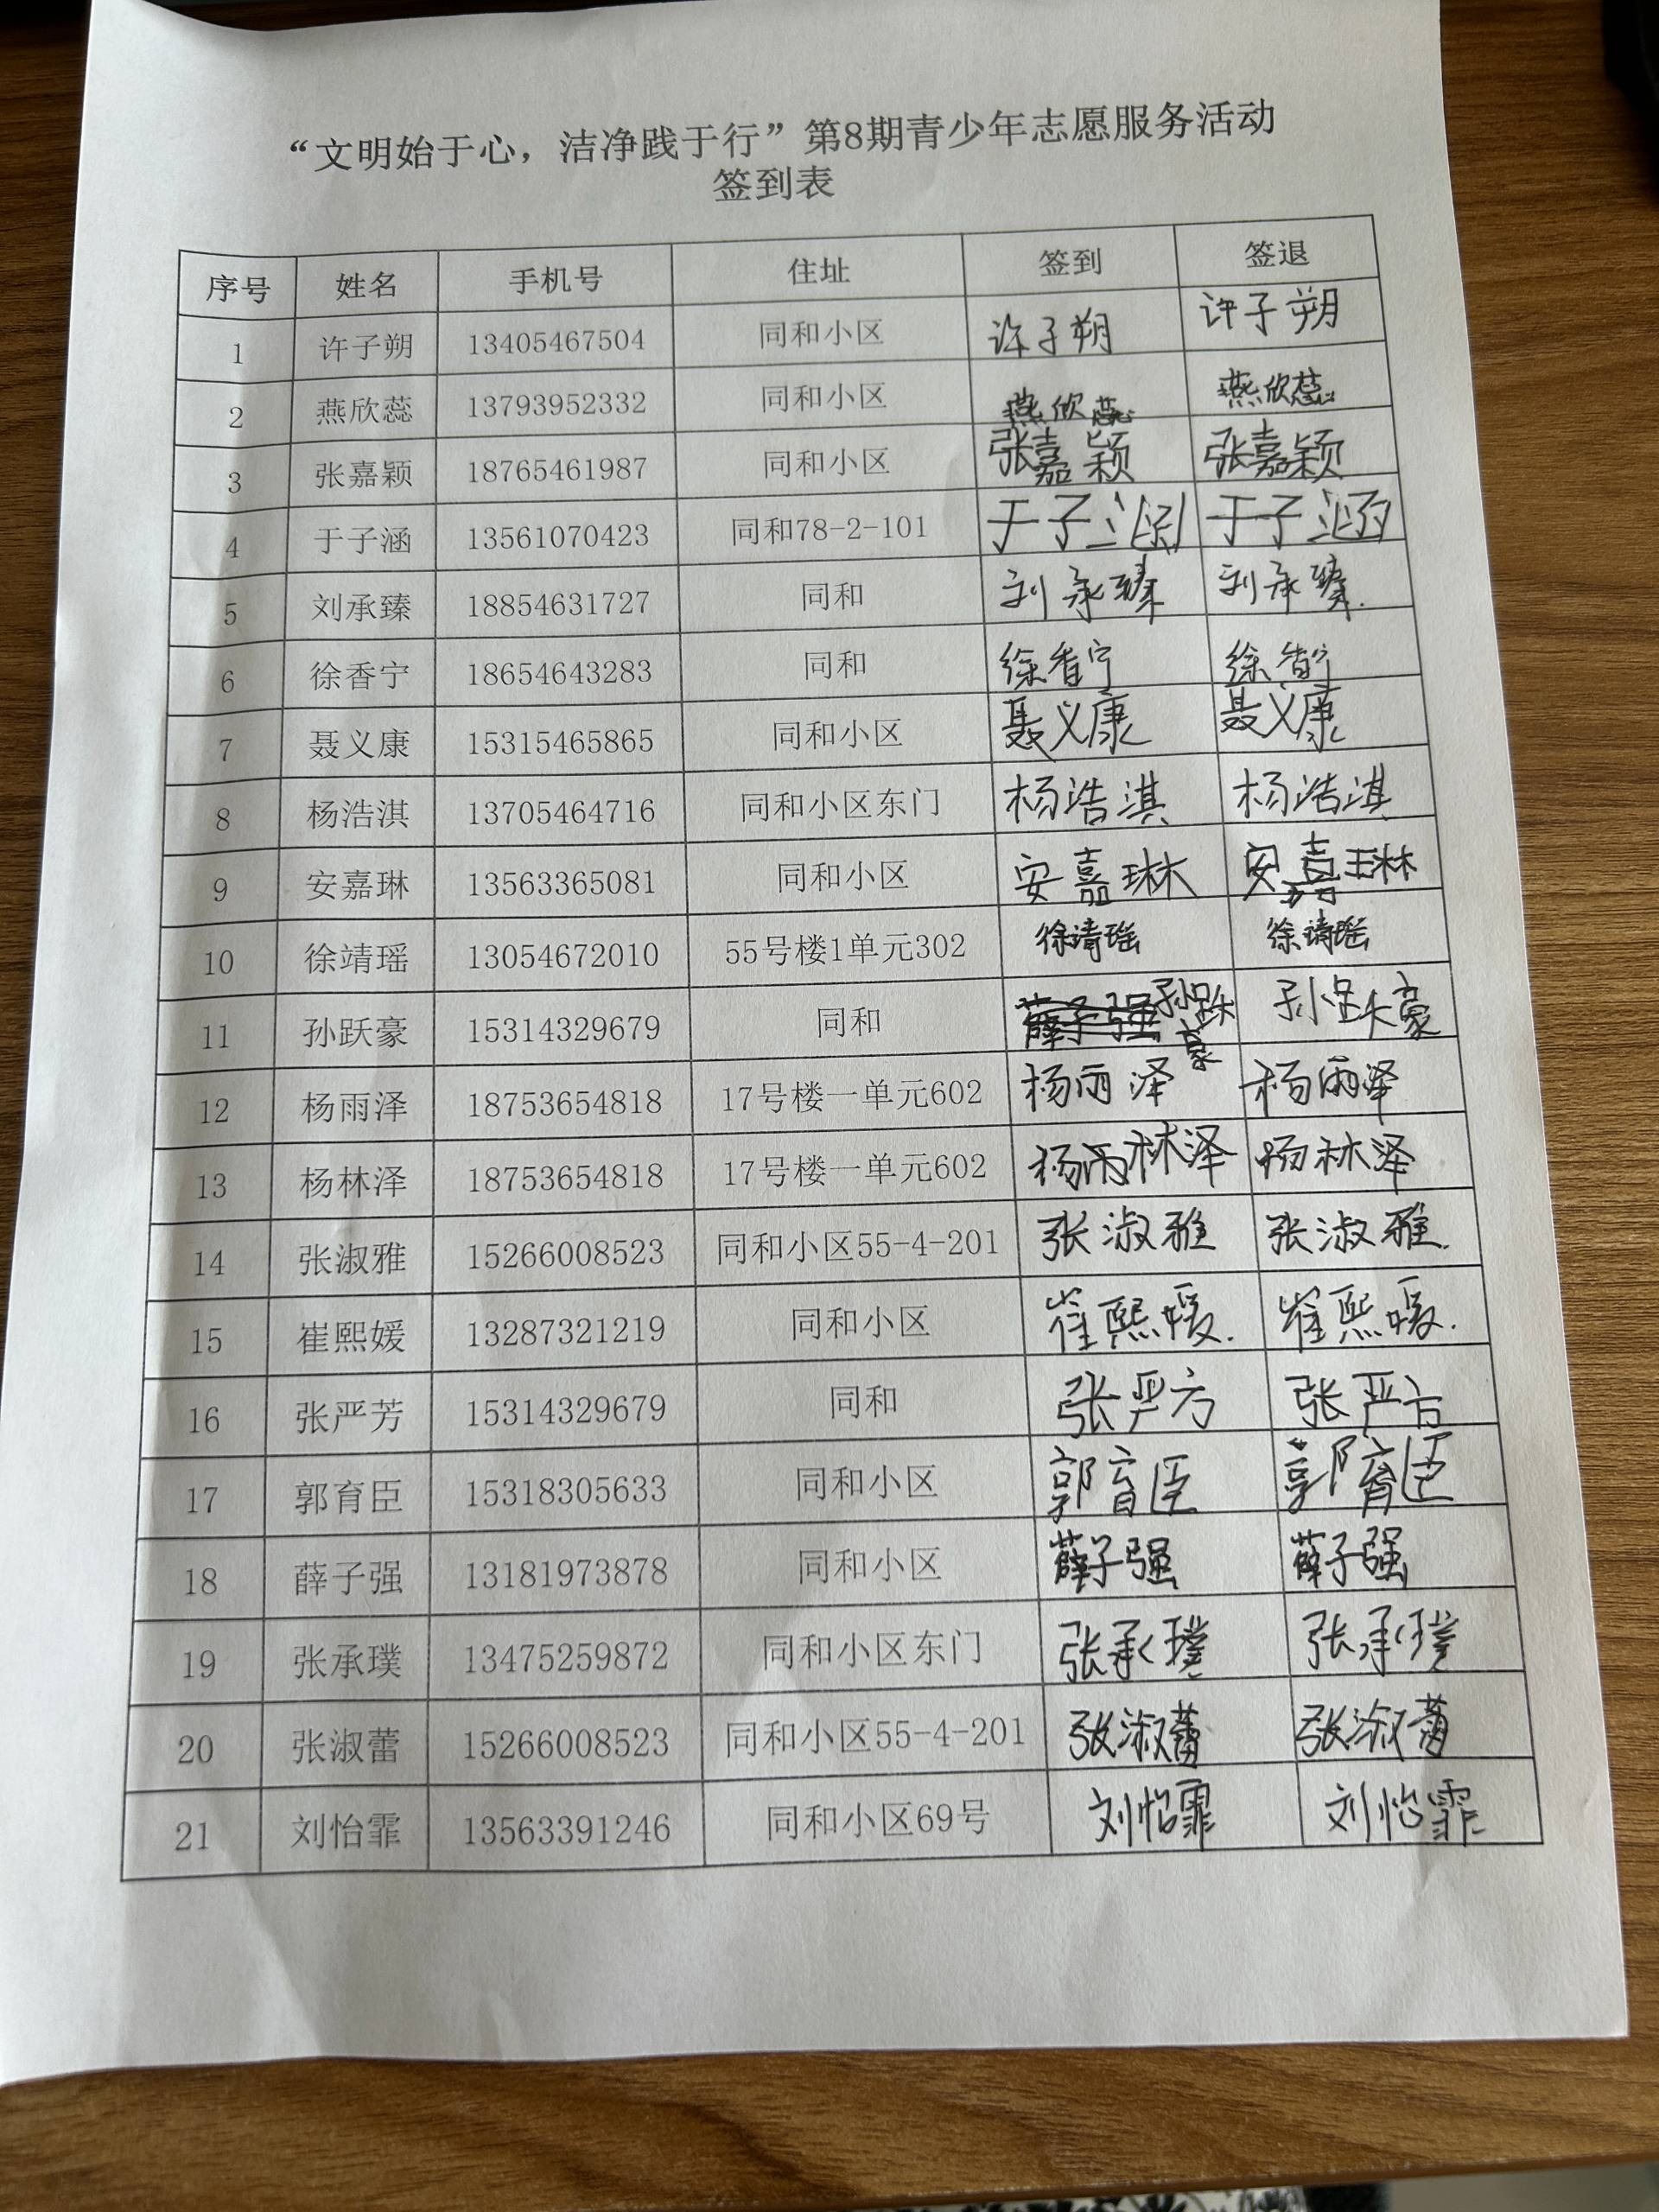 “文明始于心，洁净践于行”第8期青少年志愿服务活动
签到表
序号 姓名 手机号 住址 签到 签退
1 许子朔 13405467504 同和小区 许子朔 许子朔
2 燕欣蕊 13793952332 同和小区 燕欣蕊 燕欣蕊
3 张嘉颖 18765461987 同和小区 张嘉颖 张嘉颖
4 于子涵 13561070423 同和78-2-101 于子涵 于子涵
5 刘承臻 18854631727 同和 刘承臻 刘承臻.
6 徐香宁 18654643283 同和 徐香宁 徐香宁
7 聂义康 15315465865 同和小区 聂义康 聂义康
8 杨浩淇 13705464716 同和小区东门 杨浩淇 杨浩淇
9 安嘉琳 13563365081 同和小区 安嘉琳 安嘉琳
10 徐靖瑶 13054672010 55号楼1单元302 徐靖瑶 徐靖瑶
11 孙跃豪 15314329679 同和 薛子强 孙跃豪 孙跃豪
12 杨雨泽 18753654818 17号楼一单元602 杨雨泽 杨雨泽
13 杨林泽 18753654818 17号楼一单元602 杨雨林泽 杨林泽
14 张淑雅 15266008523 同和小区55-4-201 张淑雅 张淑雅.
15 崔熙媛 13287321219 同和小区 崔熙媛. 崔熙媛.
16 张严芳 15314329679 同和 张严方 张严方
17 郭育臣 15318305633 同和小区 郭育臣 郭育臣
18 薛子强 13181973878 同和小区 薛子强 薛子强
19 张承璞 13475259872 同和小区东门 张承璞 张承璞
20 张淑蕾 15266008523 同和小区55-4-201 张淑蕾 张淑蕾
21 刘怡霏 13563391246 同和小区69号 刘怡霏 刘怡霏